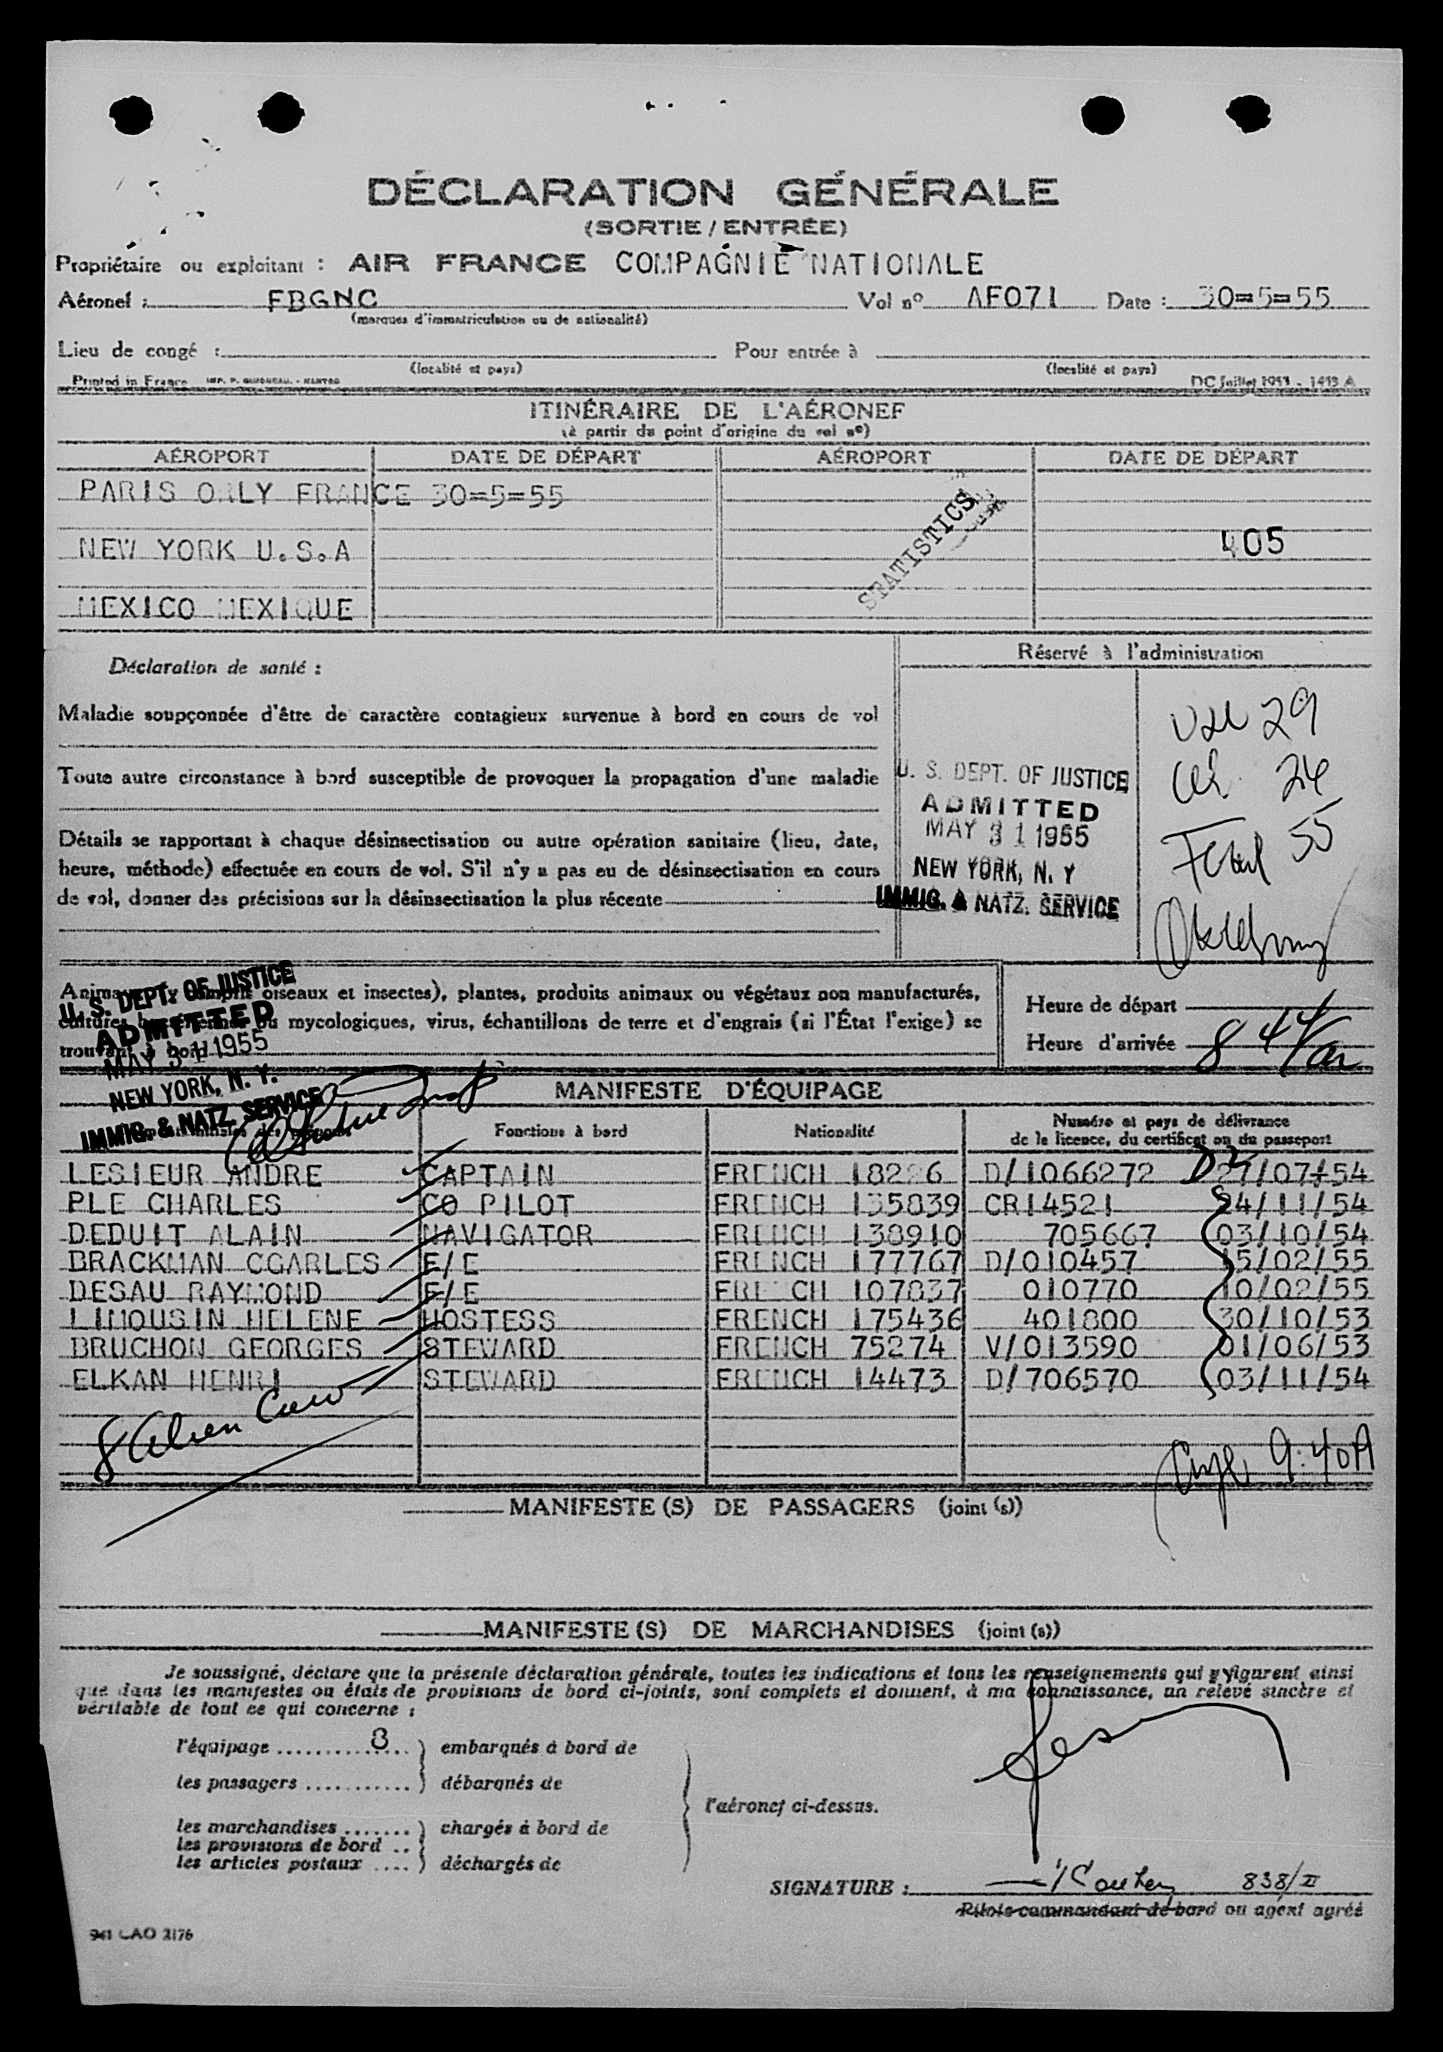 DÉCLARATION GÉNÉRALE
(SORTIE / ENTRÉE)
Propriétaire ou exploitant : AIR FRANCE COMPAGNIE NATIONALE
Aéronef : FBGNC Vol nº AF071 Date : 30=5=55
(marques d'immatriculation ou de nationalité)
Lieu de congé : Pour entrée à
(localité et pays) (localité et pays)
Printed in France DC Juillet 1953 - 1493 A
ITINÉRAIRE DE L'AÉRONEF
(à partir du point d'origine du vol nº)
AÉROPORT DATE DE DÉPART AÉROPORT DATE DE DÉPART
PARIS ORLY FRANCE 30=5=55
STATISTICS
NEW YORK U.S.A 405
MEXICO MEXIQUE
Déclaration de santé : Réservé à l'administration
Maladie soupçonnée d'être de caractère contagieux survenue à bord en cours de vol
29
Toute autre circonstance à bord susceptible de provoquer la propagation d'une maladie
U. S. DEPT. OF JUSTICE
ADMITTED
MAY 31 1955
NEW YORK, N. Y
IMMIG. & NATZ. SERVICE
Total 55
Détails se rapportant à chaque désinsectisation ou autre opération sanitaire (lieu, date,
heure, méthode) effectuée en cours de vol. S'il n'y a pas eu de désinsectisation en cours
de vol, donner des précisions sur la désinsectisation la plus récente
Animaux (y compris oiseaux et insectes), plantes, produits animaux ou végétaux non manufacturés,
cultures ou mycologiques, virus, échantillons de terre et d'engrais (si l'État l'exige) se
trouvant à bord
U. S. DEPT. OF JUSTICE
ADMITTED
MAY 31 1955
NEW YORK, N. Y.
IMMIG. & NATZ. SERVICE
Heure de départ
Heure d'arrivée 8 44
MANIFESTE D'ÉQUIPAGE
Fonctions à bord Nationalité Numéro et pays de délivrance
de la licence, du certificat ou du passeport
LESIEUR ANDRE CAPTAIN FRENCH 18226 D/1066272 27/07/54
PLE CHARLES CO PILOT FRENCH 135839 CR14521 24/11/54
DEDUIT ALAIN NAVIGATOR FRENCH 138910 705667 03/10/54
BRACKMAN CGARLES E/E FRENCH 177767 D/010457 15/02/55
DESAU RAYMOND E/E FRENCH 107837 010770 10/02/55
LIMOUSIN HELENE HOSTESS FRENCH 175436 401800 30/10/53
BRUCHON GEORGES STEWARD FRENCH 75274 V/013590 01/06/53
ELKAN HENRI STEWARD FRENCH 14473 D/706570 03/11/54
8 Alien Crew
9:40A
MANIFESTE (S) DE PASSAGERS (joint (s))
MANIFESTE (S) DE MARCHANDISES (joint (s))
Je soussigné, déclare que la présente déclaration générale, toutes les indications et tous les renseignements qui y figurent ainsi
que dans les manifestes ou états de provisions de bord ci-joints, sont complets et donnent, à ma connaissance, un relevé sincère et
véritable de tout ce qui concerne :
l'équipage .............. 8 ) embarqués à bord de
les passagers ........... ) débarqués de
l'aéronef ci-dessus.
les marchandises ....... ) chargés à bord de
les provisions de bord ..
les articles postaux .... ) déchargés de
SIGNATURE : 838/II
Pilote commandant de bord ou agent agréé
941 CAO 2176